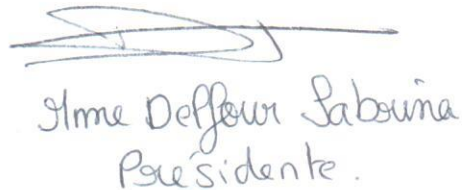 Mme Delfour Sabrina
Présidente.